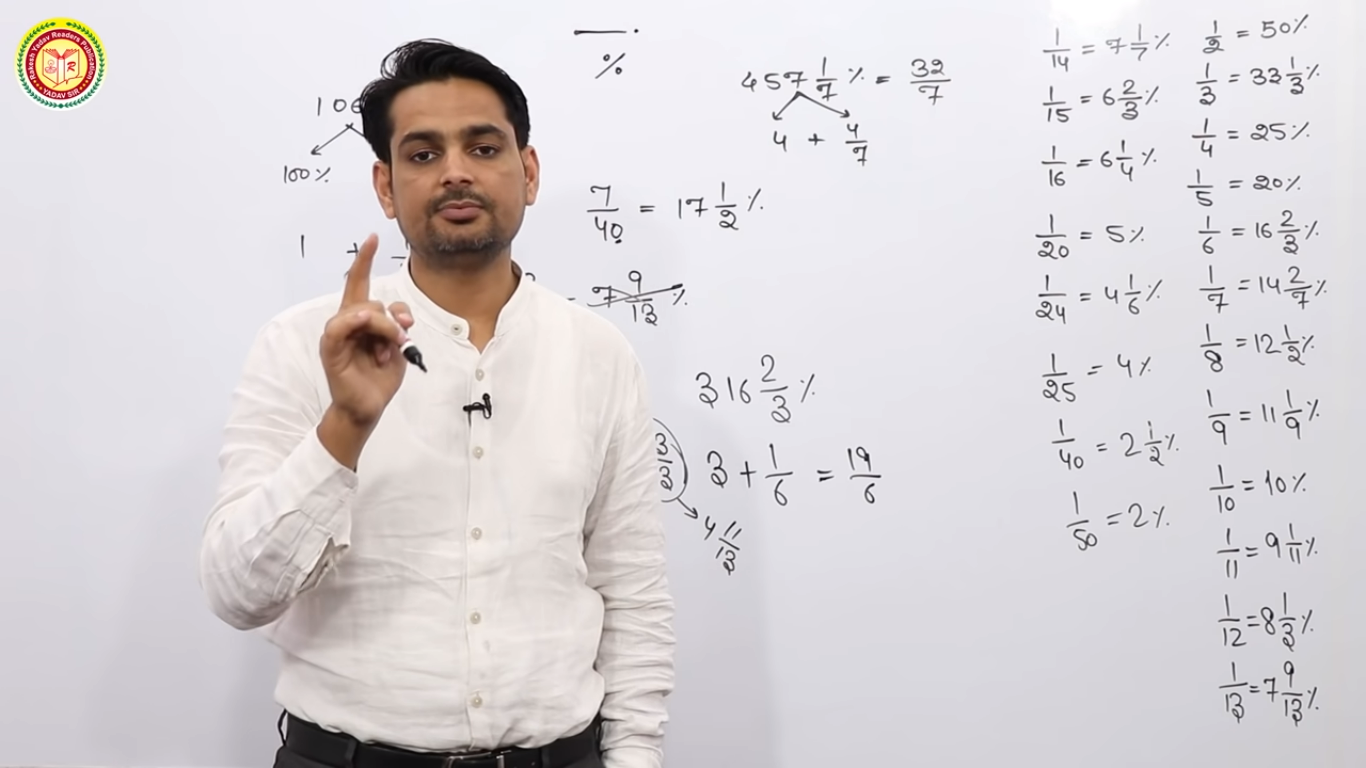 Rakesh Yadav Readers Publication
YADAV SIR
%
100%
1 +
457 1/7 % = 32/7
4 + 4/7
7/40 = 17 1/2 %
7 9/13 %
316 2/3 %
3 + 1/6 = 19/6
4 11/13
1/14 = 7 1/7 %
1/15 = 6 2/3 %
1/16 = 6 1/4 %
1/20 = 5%
1/24 = 4 1/6 %
1/25 = 4%
1/40 = 2 1/2 %
1/50 = 2%
1/2 = 50%
1/3 = 33 1/3 %
1/4 = 25%
1/5 = 20%
1/6 = 16 2/3 %
1/7 = 14 2/7 %
1/8 = 12 1/2 %
1/9 = 11 1/9 %
1/10 = 10%
1/11 = 9 1/11 %
1/12 = 8 1/3 %
1/13 = 7 9/13 %